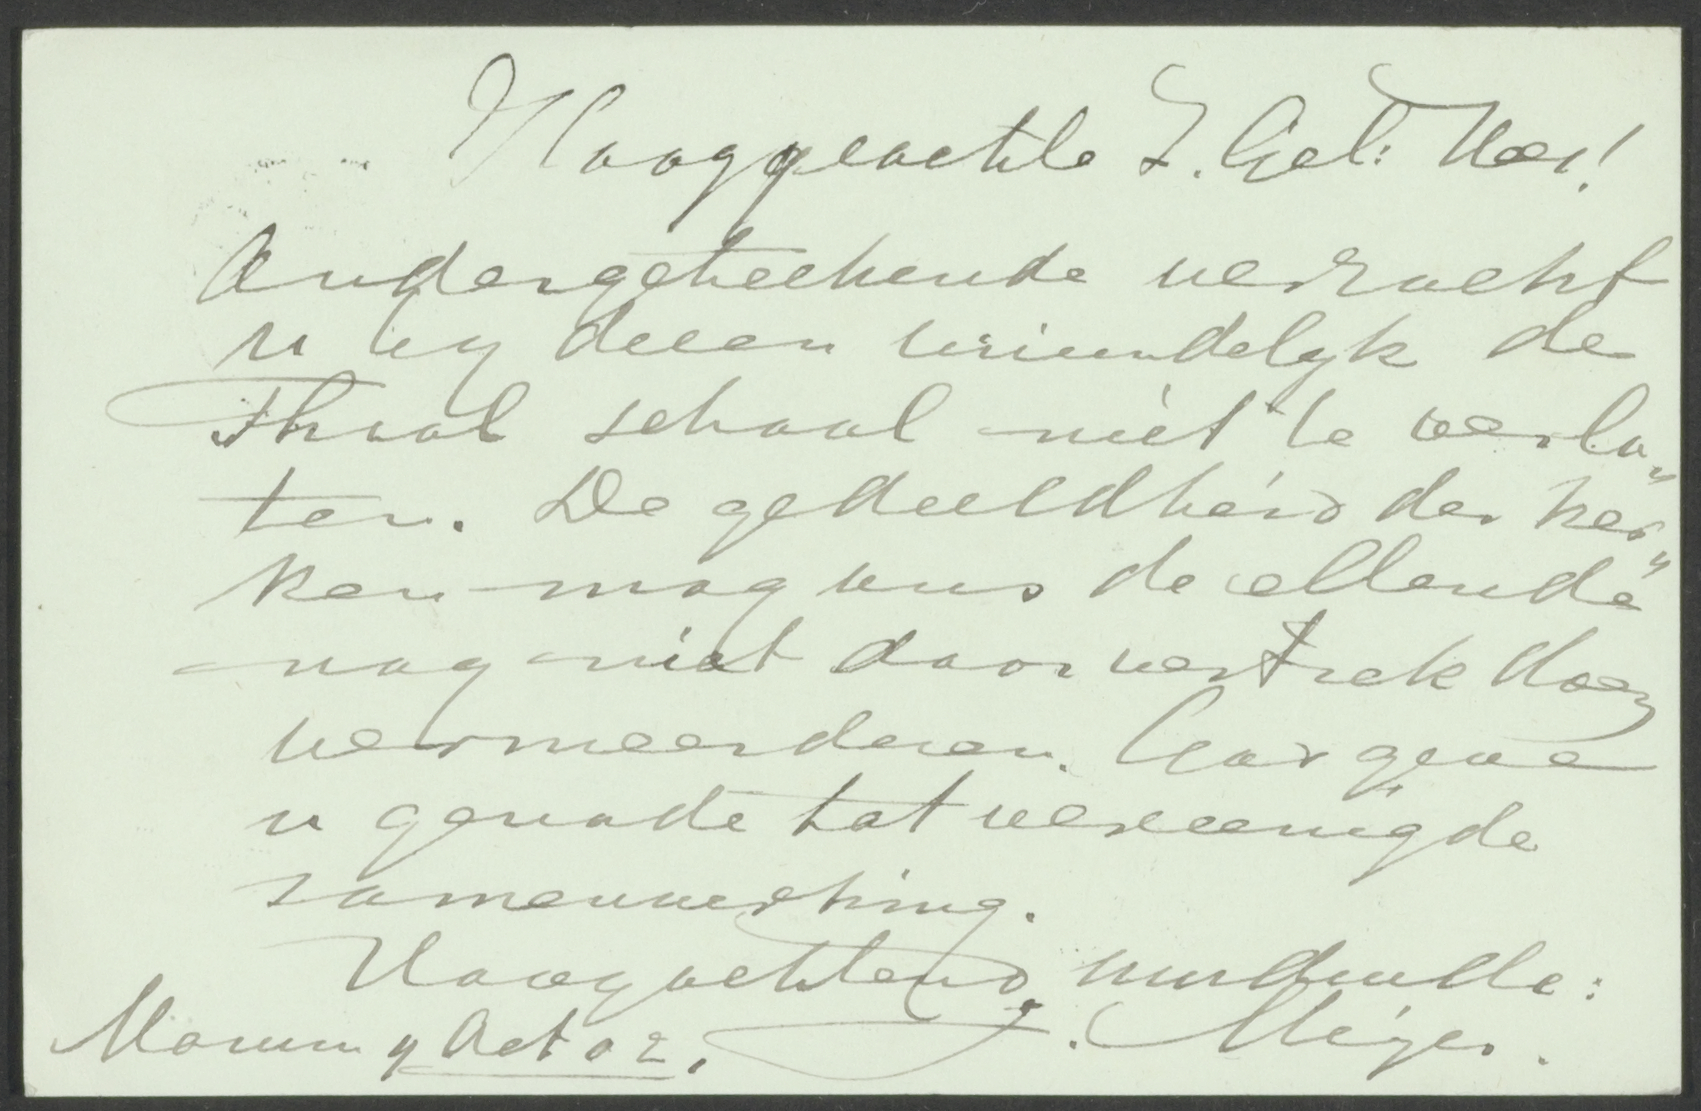 Hooggeachte Z. Gel: Heer!
Ondergeteekende verzocht
u by deeen vriendelyk de
Theol school niet te verla„
ten. De gedeeldheid der ker„
ken mag ons de ellende
nog niet door vertrek doen
vermeerderen. God geve
u genade tot vereenigde
samenwerking.
Hoogachtend, uwdwdie:
Marum 4 Oct 02. J. Meijer.